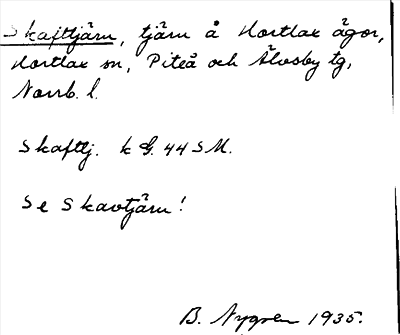 Skaftjärn, tjärn å Hortlax ägor,
Hortlax sn, Piteå och Älvsby tg,
Norrb. l.
Skaftj. k G. 44 SM.
Se Skavtjärn!
B. Nygren 1935.